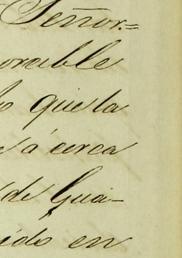 Señor.=
orable
o que la
s á cerca
de Guai-
ido en